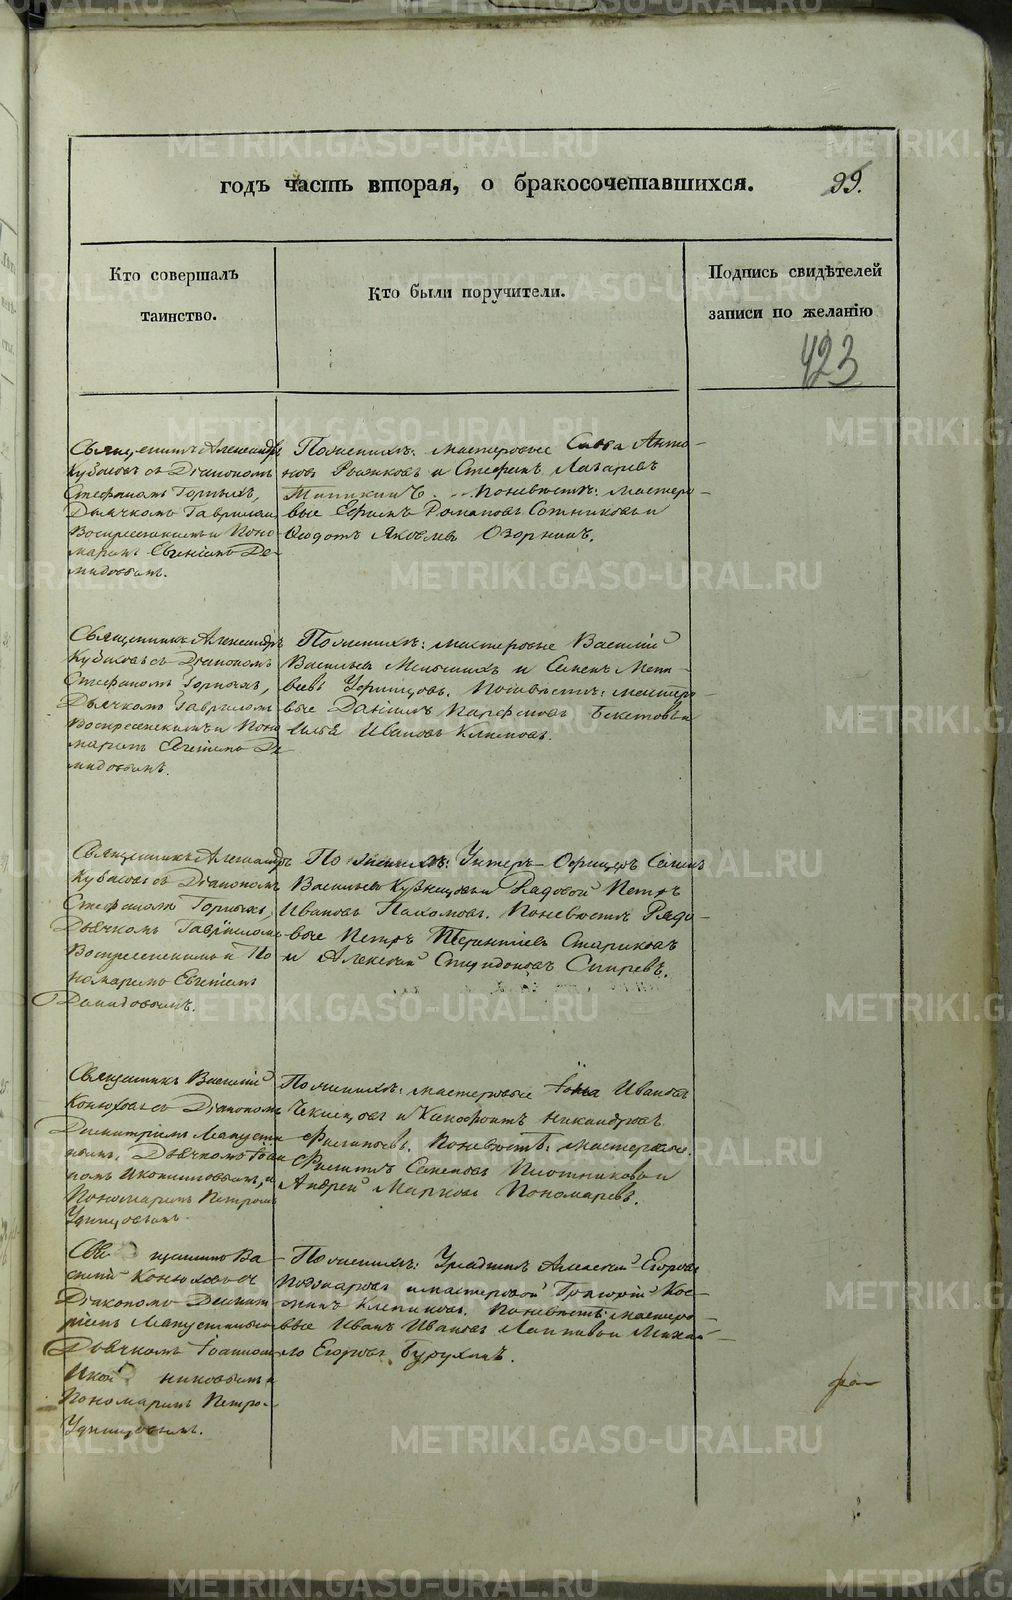 годъ часть вторая, о бракосочетавшихся.
99.
Кто совершалъ
таинство.
Кто были поручители.
Подпись свидѣтелей
записи по желанію
423
Священникъ Александръ
Кубасовъ съ Діакономъ
Стефаномъ Горныхъ,
Дьячкомъ Гавриломъ
Воскресенскимъ и Поно
маремъ Евгеніемъ Де-
мидовымъ.
По женихѣ: мастеровые Савва Анто-
новъ и Стефанъ Лазаревъ
По невѣстѣ: мастеро-
вые Ефимъ Романовъ Сотниковъ и
Ѳеодотъ Яковлевъ Озорнинъ.
Священникъ Александръ
Кубасовъ съ Діакономъ
Стефаномъ Горныхъ,
Дьячкомъ Гавриломъ
Воскресенскимъ и Поно
маремъ Евгеніемъ Де
мидовымъ.
По женихѣ: мастеровые Василій
Васильевъ и Семенъ
По невѣстѣ: мастеро-
вые Даніилъ Парфеновъ Бекетовъ и
Илья Ивановъ Климовъ.
Священникъ Александръ
Кубасовъ съ Діакономъ
Стефаномъ Горныхъ,
Дьячкомъ Гавріиломъ
Воскресенскимъ и По
номаремъ Евгеніемъ
Демидовымъ.
По женихѣ: Унтеръ-Офицеръ Семенъ
Васильевъ Кузнецовъ и Рядовой Петръ
Ивановъ Пахомовъ. По невѣстѣ Рядо-
вые Петръ Терентіевъ Стариковъ
и Алексѣй Спиридоновъ Спиревъ.
Священникъ Василій
Конюховъ съ Діакономъ
Димитріемъ Лапусти
нымъ, Дьячкомъ Іоан
номъ Иконниковымъ, и
Пономаремъ Петромъ
Удинцовымъ.
По женихѣ: мастеровые Іона Ивановъ
и Ксенофонтъ Никандровъ
Филатьевъ. По невѣстѣ: мастеровые
Филиппъ Семеновъ Плотниковъ и
Андрей Марковъ Пономаревъ.
Священникъ Ва-
силій Конюховъ съ
Діакономъ Димит
ріемъ Лапустинымъ
Дьячкомъ Іоанномъ
Иконниковымъ и
Пономаремъ Петро-
Удинцовымъ.
По женихѣ: Урядникъ Алексѣй Егоровъ
и мастеровой Григорій Кос-
Клепиковъ. По невѣстѣ: мастеро-
вые Иванъ Ивановъ Лаптевъ и Михай-
ло Егоровъ Бурухинъ.
METRIKI.GASO-URAL.RU